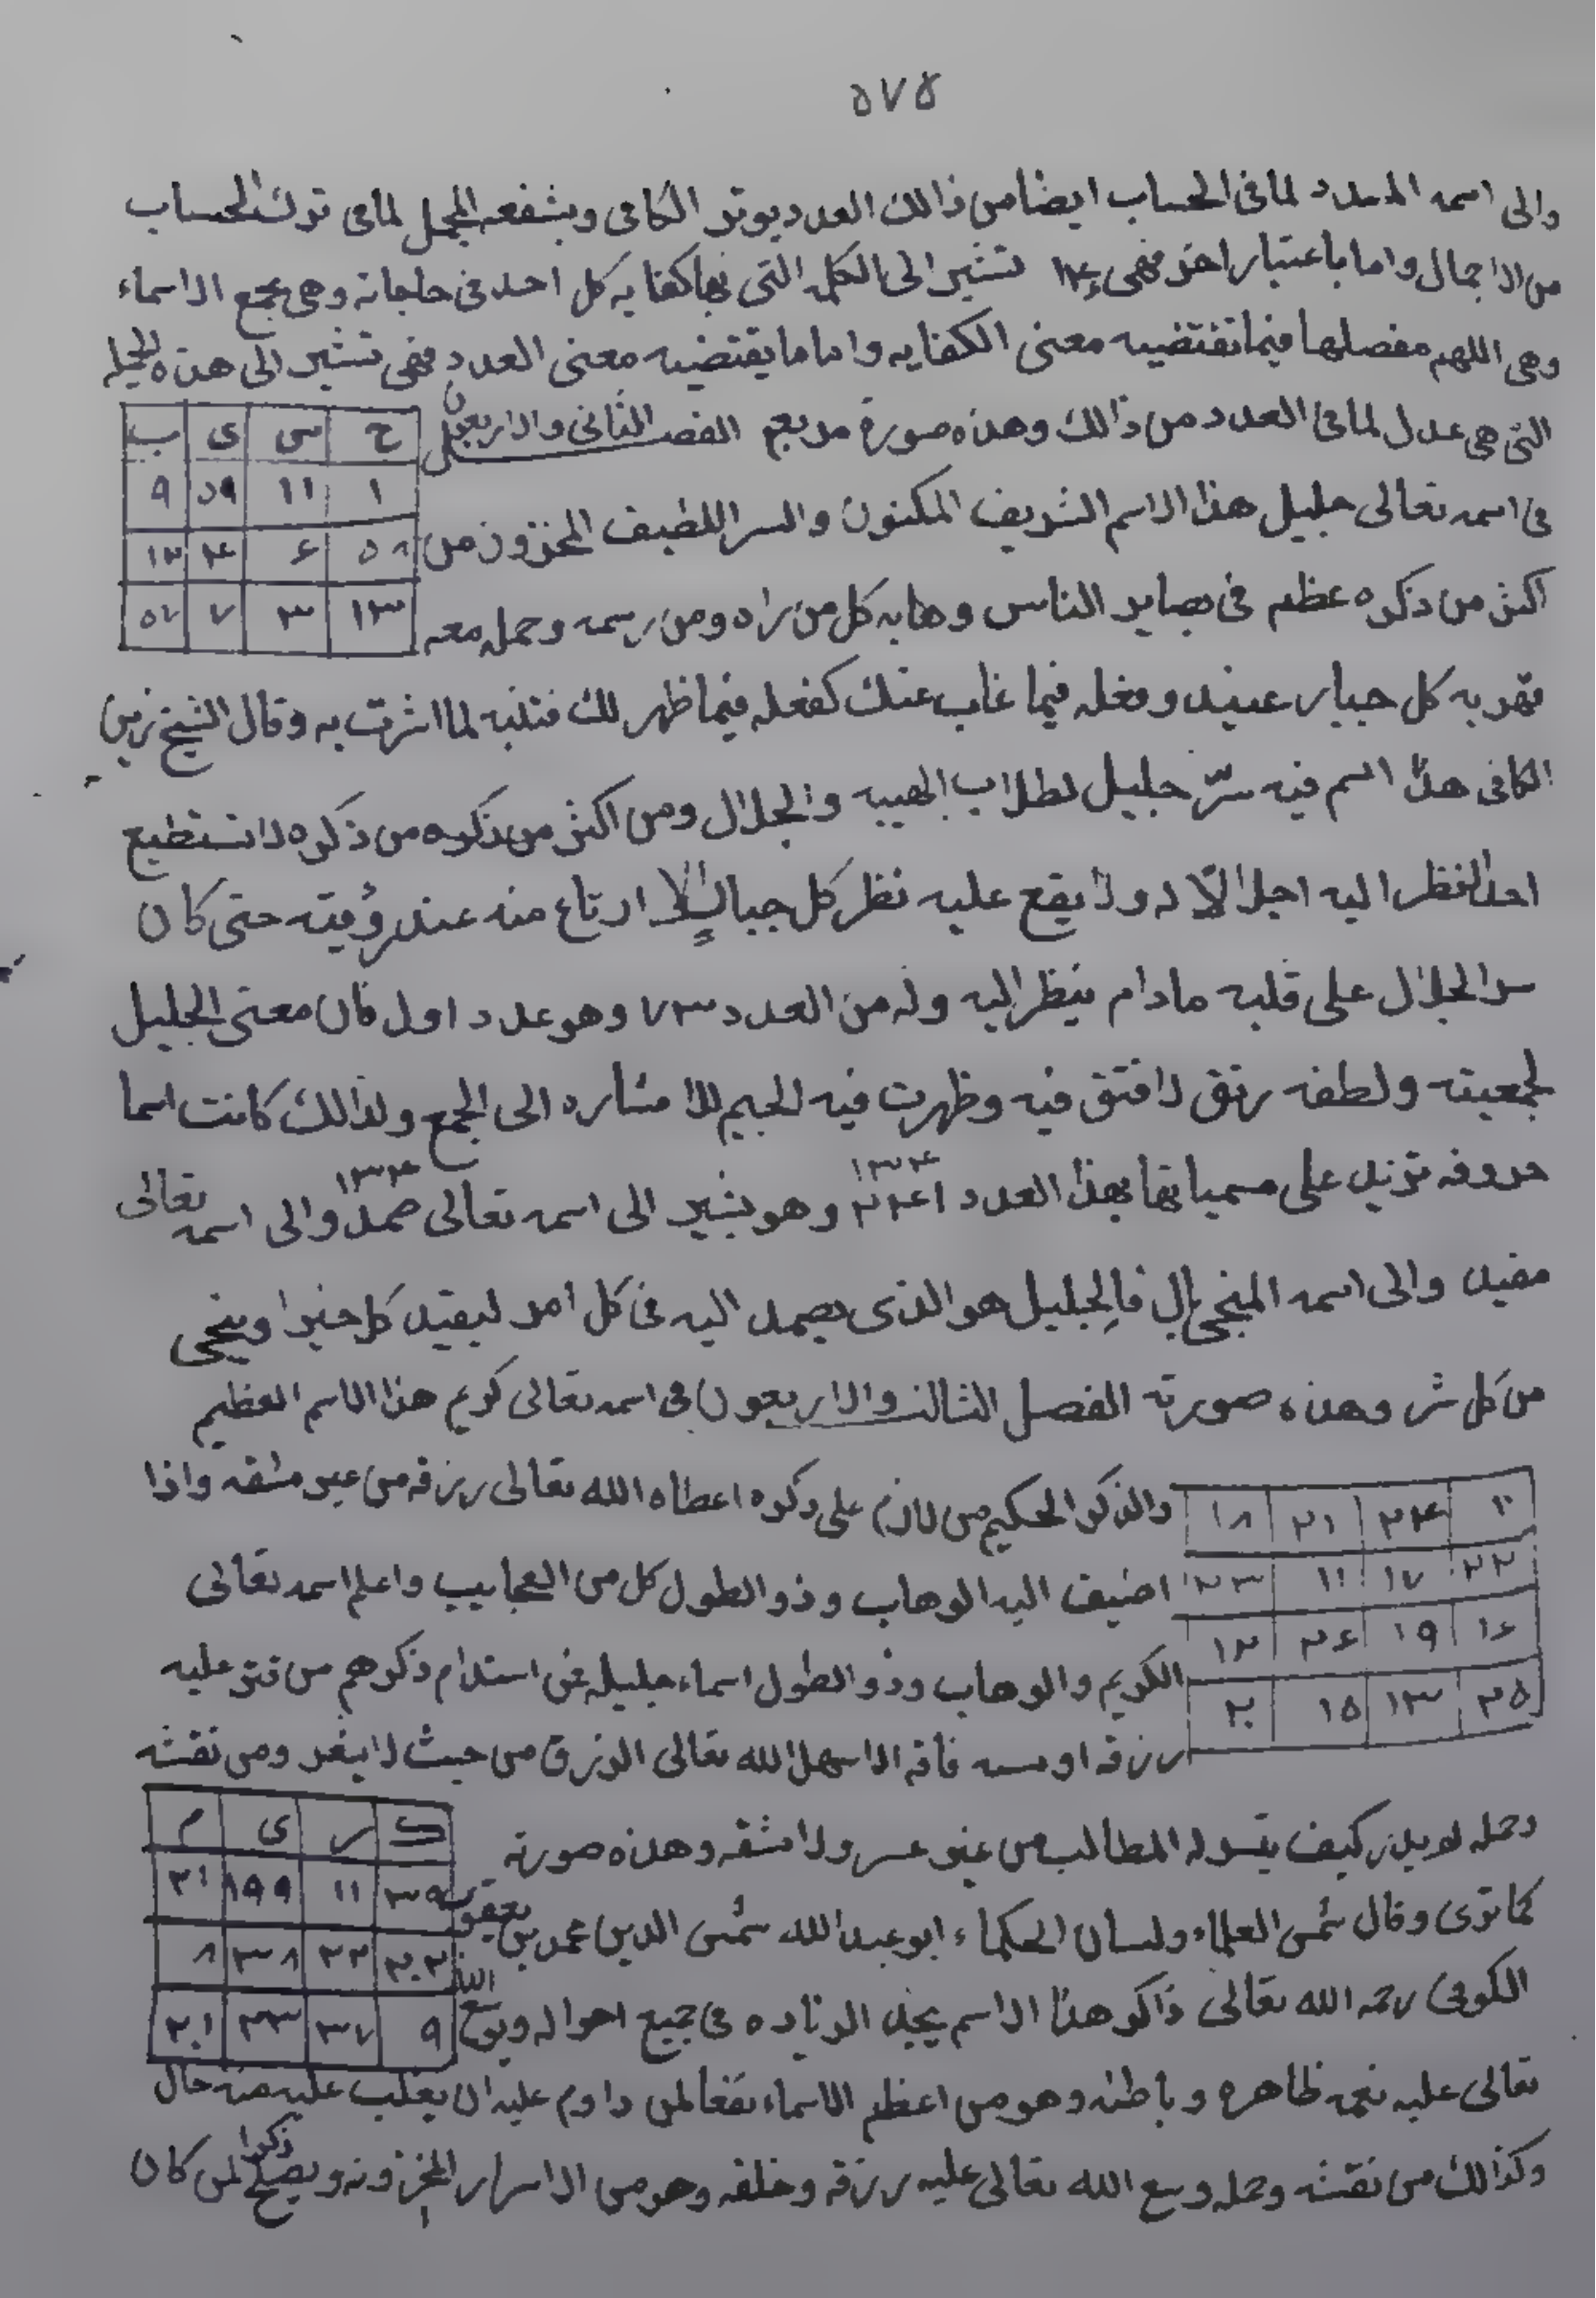 ٥٧٥
والى اسمه المسدد لما فى الحساب ايضا من ذالك العدد بوتر الكافى وبشفعه المجمل لما فى تولت الحساب
من الاجمال واما باعتبار اخر فهى ١٤ تشير الى الكلمه التى بها كفايه كل احد فى حاجاته وهى مجمع الاسماء
وهى اللهم مفصلها فيما تقتضيه معنى الكفايه واما ما يقتضيه معنى العدد فهى تشير الى هذه الجمله
التى هى عدل لما فى العدد من ذالك وهذه صورة مربعه الفصل الثانى والاربعون
ح س ى ب
١ ١١ ٥٩ ٩
٥٨ ٦ ٤ ١٢
١٣ ٣ ٧ ٥٧
فى اسمه تعالى جليل هذا الاسم الشريف المكنون والسر اللطيف المخزون من
اكثر من ذكره عظم فى بصاير الناس وهابه كل من راه ومن رسمه وحمله معه
قهر به كل جبار عنيد وفعله فيما غاب عنك كفعله فيما ظهر لك فتنبه لما اشرت به وقال الشيخ زين
الكافى هذا اسم فيه سرّ جليل لطلاب الهيبه والجلال ومن اكثر من ذكره من ذكره لا تستطيع
احد النظر اليه اجلالاً له ولا يقع عليه نظر كل جبار إلا ارتاع منه عند رؤيته حتى كان
سر الجلال على قلبه مادام ينظر اليه وله من العدد ٧٣ وهو عدد اول فان معنى الجليل
لجمعيته ولطفه رتق لا فتق فيه وظهرت فيه الجيم للاشاره الى الجمع ولذالك كانت اسما
حروفه تزيد على مسمياتها بهذا العدد ١٣٤ وهو يشير الى اسمه تعالى صمد ١٣٤ والى اسمه تعالى
مفيد والى اسمه المنجى فالجليل هو الذى يصمد اليه فى كل امر ليفيد كل خيرا وينجى
من كل شر وهذه صورته الفصل الثالث والاربعون فى اسمه تعالى كريم هذا الاسم العظيم
٢٤ ٢١ ١٨
٢٢ ١٧ ١١ ٢٣
١٦ ١٩ ٢٦ ١٢
٢٥ ١٣ ١٥ ٢٠
والذكر الحكيم من لازم على ذكره اعطاه الله تعالى رزقه من غير مشقه واذا
اضيف اليه الوهاب وذو الطول كل من العجايب واعلم اسمه تعالى
الكريم والوهاب وذو الطول اسماء جليله فمن استدام ذكرهم من قتر عليه
رزقه او مسه فاقه الا سهل الله تعالى الرزق من حيث لا يشعر ومن نقشه
وحمله لم يدر كيف يتسر له المطالب من غير عسر ولا مشقه وهذه صورته
ك ر ى م
٣٩ ١١ ١٩٩ ٢١
٢٠٢ ٢٢ ٣٨ ٨
٩ ٣٧ ٢٣ ٢٠١
كما ترى وقال شمس العلماء ولسان الحكماء ابو عبد الله شمس الدين محمد بن يعقوب
الكوفى رحمه الله تعالى ذاكر هذا الاسم يجد الزياده فى جميع احواله ويوسع الله
تعالى عليه نعمه ظاهره وباطنه وهو من اعظم الاسماء نفعا لمن داوم عليه ان يغلب عليه منه حال
وكذالك من نقشه وحمله وسع الله تعالى عليه رزقه وخلقه وهو من الاسرار المخزونه ويصلح ذكرا لمن كان